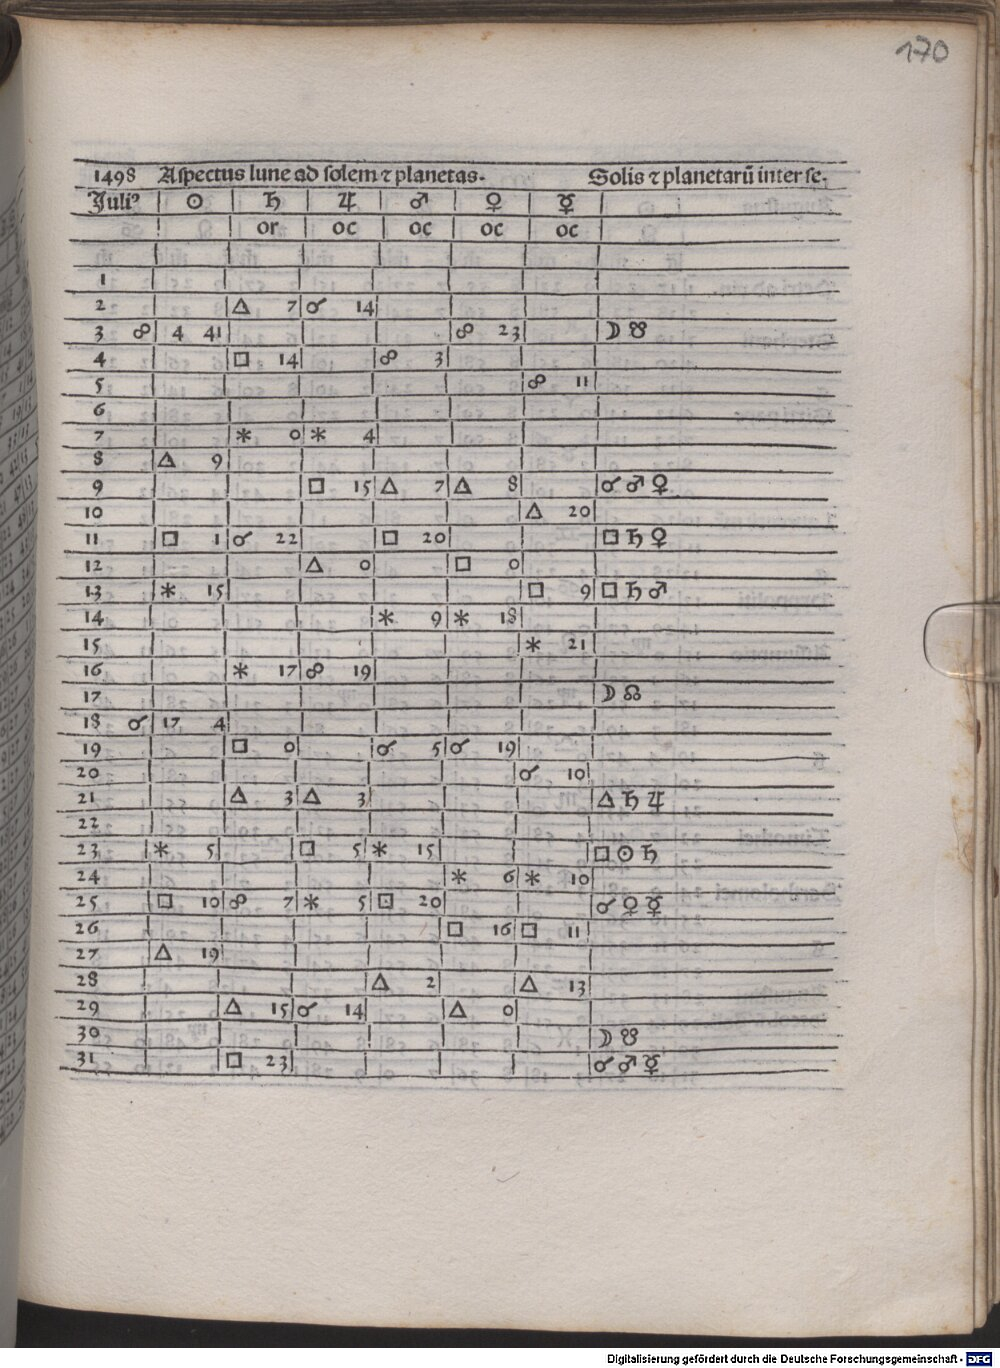 170
1498 Aſpectus lune ad ſolem ⁊ planetas. Solis ⁊ planetarū inter ſe.
Juliꝰ ☉ ♄ ♃ ♂ ♀ ☿
or oc oc oc oc
1
2 △ 7 ☌ 14
3 ☍ 4 41 ☍ 23 ☽ ☋
4 □ 14 ☍ 3
5 ☍ 11
6
7 ⚹ 0 ⚹ 4
8 △ 9
9 □ 15 △ 7 △ 8 ☌ ♂ ♀
10 △ 20
11 □ 1 ☌ 22 □ 20 □ ♄ ♀
12 △ 0 □ 0
13 ⚹ 15 □ 9 □ ♄ ♂
14 ⚹ 9 ⚹ 18
15 ⚹ 21
16 ⚹ 17 ☍ 19
17 ☽ ☊
18 ☌ 17 4
19 □ 0 ☌ 5 ☌ 19
20 ☌ 10
21 △ 3 △ 3 △ ♄ ♃
22
23 ⚹ 5 □ 5 ⚹ 15 □ ☉ ♄
24 ⚹ 6 ⚹ 10
25 □ 10 ☍ 7 ⚹ 5 □ 20 ☌ ♀ ☿
26 □ 16 □ 11
27 △ 19
28 △ 2 △ 13
29 △ 15 ☌ 14 △ 0
30 ☽ ☋
31 □ 23 ☌ ♂ ☿
Digitalisierung gefördert durch die Deutsche Forschungsgemeinschaft - DFG